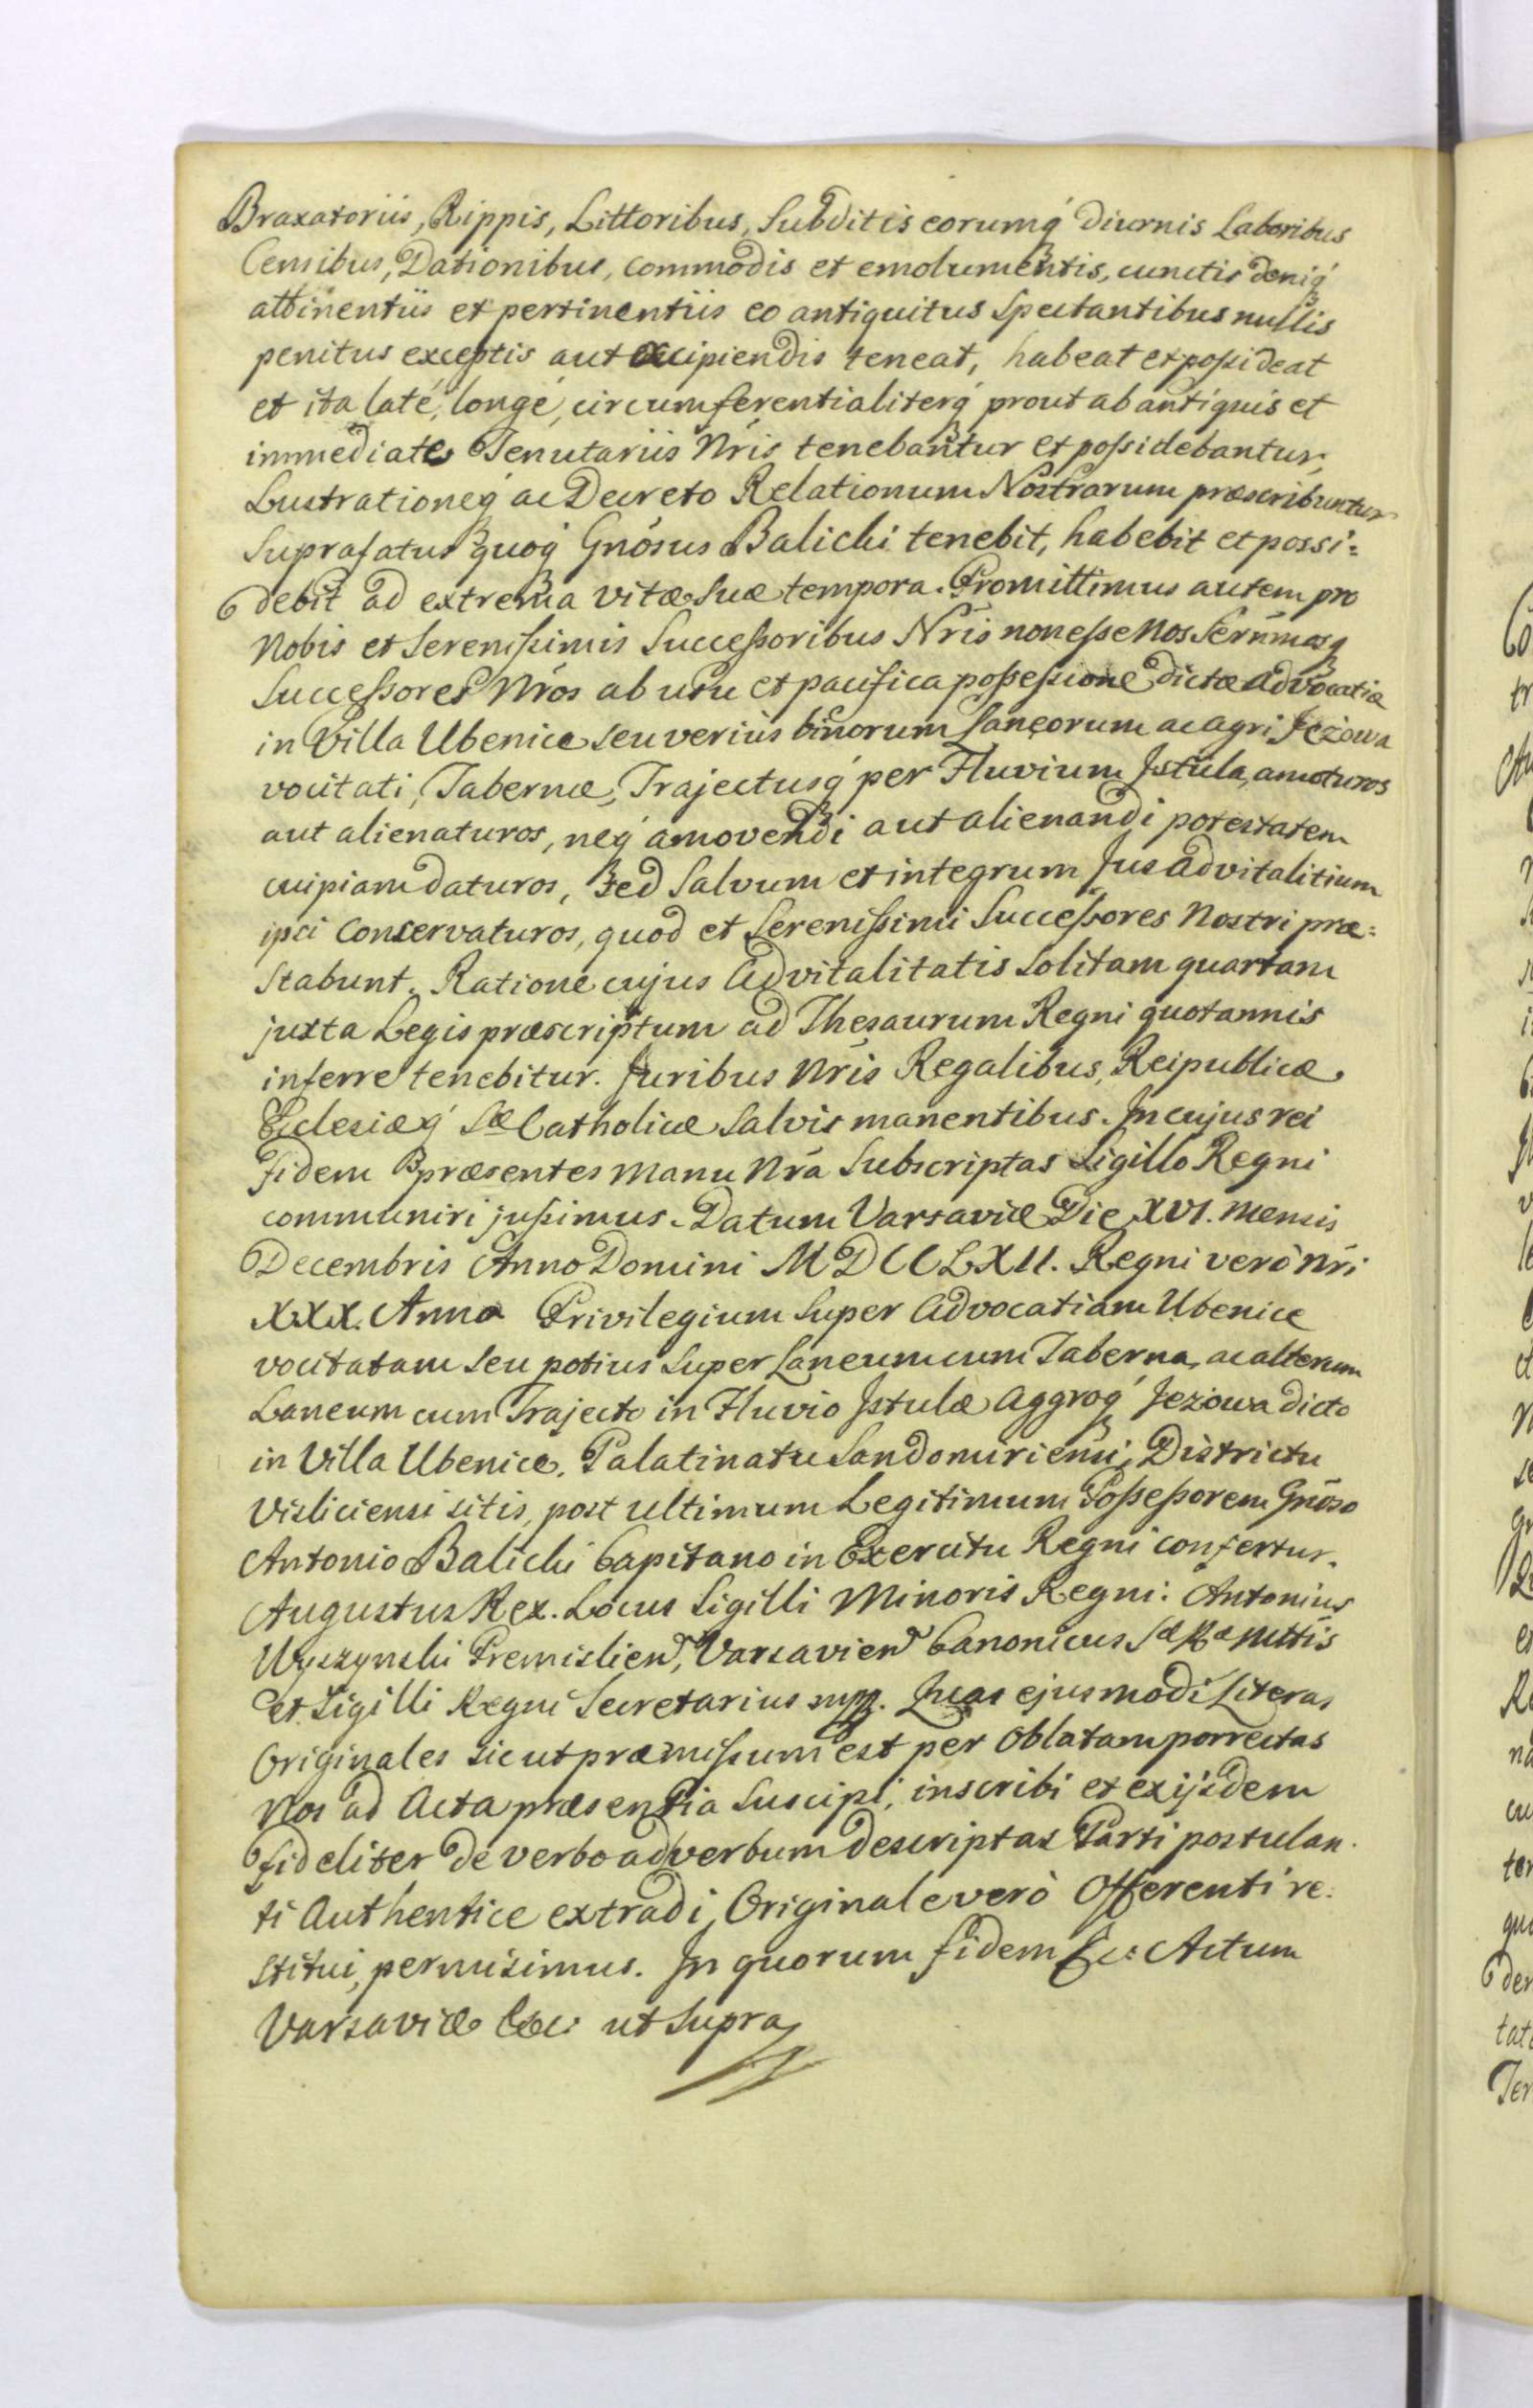 Braxatoriis, Rippis, Littoribus, Subditis eorumq́ diurnis Laboribus
Censibus, Dationibus, commodis et emolumentis, cunctis deniq́
attinentiis et pertinentiis eo antiquitus Spectantibus nullis
penitus exceptis aut excipiendis teneat, habeat et possideat
et ita laté, longé, circumferentialiterq́ prout ab antiquis et
immediate Tenutariis Nris tenebantur et possidebantur,
Lustrationeq́ ac Decreto Relationum Nostrarum præscribuntur
Suprafatus quoq́ Gnosus Balicki tenebit, habebit et possi=
debit ad extrema vitæ Suæ tempora. Promittimus autem pro
Nobis et Serenissimis Successoribus Nris non esse Nos Sermosq
Successores Nros ab usu et pacifica possessione dictæ Advocatiæ
in Villa Ubenice seu verius binorum Laneorum ac agri Jeżowa
vocitati, Tabernæ, Trajectusq́ per Fluvium Istula, amoturos
aut alienaturos, neq́ amovendi aut alienandi potestatem
cuipiam daturos, Sed Salvum et integrum Jus advitalitium
ipsi Conservaturos, quod et Serenissimi Successores Nostri præ=
stabunt. Ratione cujus Advitalitatis Solitam quartam
juxta Legis præscriptum ad Thesaurum Regni quotannis
inferre tenebitur. Juribus Nris Regalibus, Reipublicæ
Eclesiæq́ Sæ Catholicæ Salvis manentibus. In cujus rei
fidem præsentes Manu Nra Subscriptas Sigillo Regni
communiri jussimus. Datum Varsaviæ Die XVI. Mensis
Decembris Anno Domini MDCCLXII. Regni verò Nri
XXX. Anno Privilegium Super Advocatiam Ubenice
vocitatam Seu potius Super Laneum cum Taberna, ac alterum
Laneum cum Trajecto in Fluvio Istulæ Aggroq́ Jeżowa dicto
in Villa Ubenice, Palatinatu Sandomiriensi, Districtu
Visliciensi sitis, post ultimum Legitimum Possessorem Gnoso
Antonio Balicki Capitano in Exercitu Regni confertur.
Augustus Rex. Locus Sigilli Minoris Regni: Antonius
Wyszynski Premislien, Varsavien Canonicus Sæ Ræ Mttis
et Sigilli Regni Secretarius mpp. Quas ejusmodi Literas
Originales sicut præmissum est per Oblatam porrectas
Nos ad Acta præsentia Suscipi, inscribi et exijsdem
fideliter de verbo ad verbum descriptas Parti postulan
ti Authentice extradi, Originale verò Offerenti re=
stitui, permisimus. In quorum fidem &c: Actum
Varsaviæ &c: ut Supra